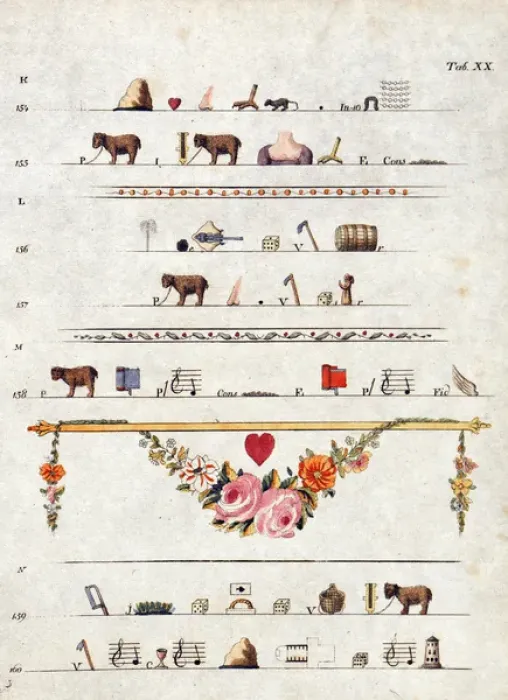 Tab. XX.
K
154 In-io
155 P t F. Cons
L
156 e V r
157 P V r
M
158 P P/ Cons F. P/ Fid
N
159 V
160 V C